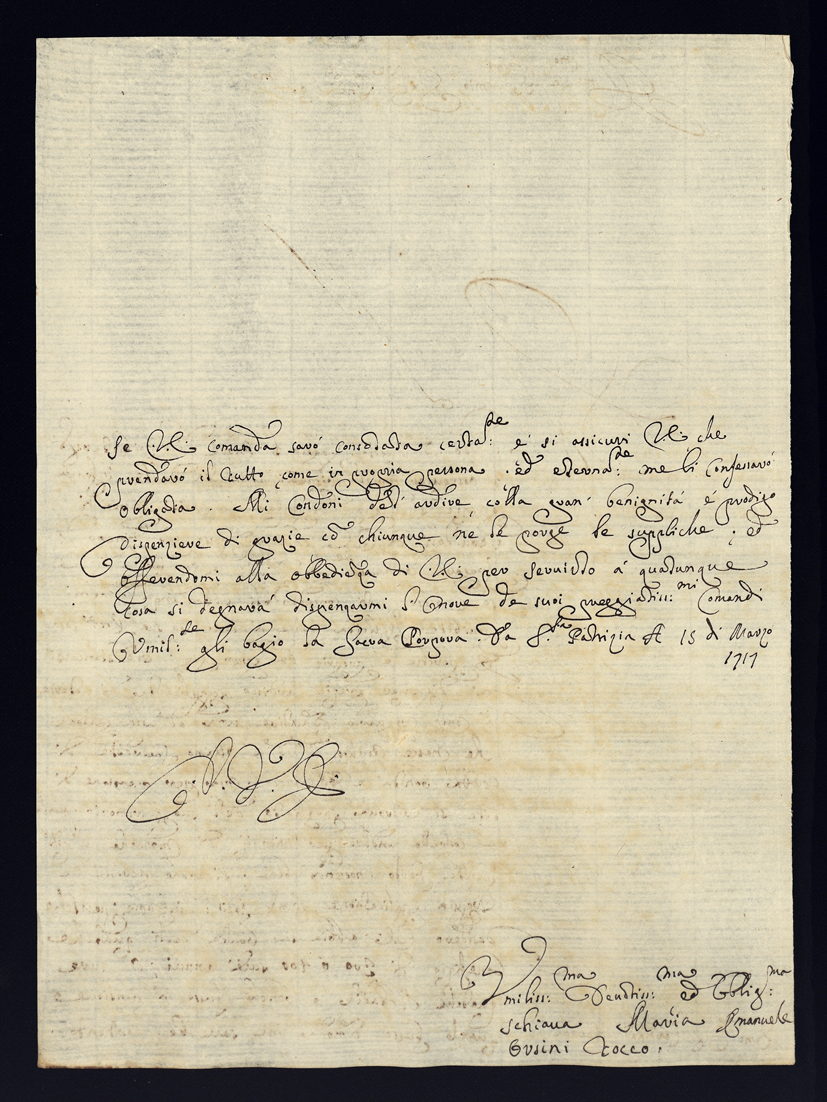 Se V.E. comanda sarò consolata certa:te e si assicuri V.E. che
prenderò il tutto come in propria persona. ed eterna:te me li confesserò
obligata. Mi condoni dell'ardire colla gran benignità e prodigo
dispenziere di grazie cō chiunque ne le porge le suppliche; ed
offerendomi alla obbediēza di V.E. per servirlo à qualunque
cosa si degnarà dispenzarmi l'onore de suoi preggiatiss:mi Comandi
Umil:te gli bagio la Sacra Porpora. Da S.ta Patrizia A 15 di Marzo
1717
D. V. E.
Vmiliss:ma Deuotiss:ma ed Oblig:ma
schiaua Maria Emanuele
Orsini Rocco.